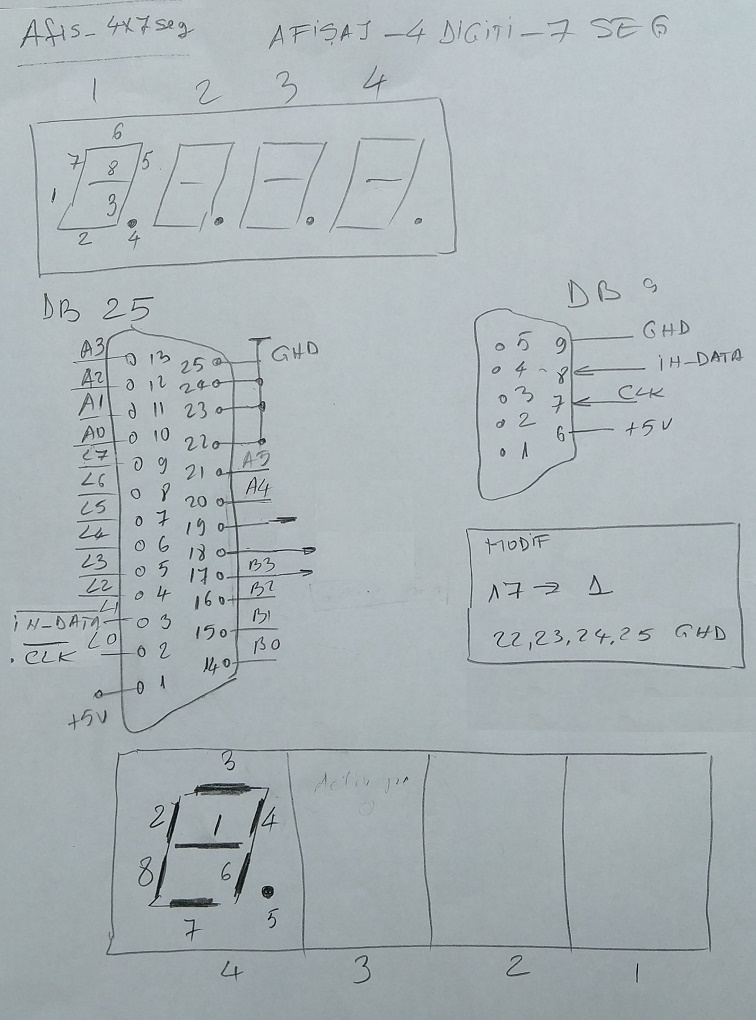 Afis-4x7seg
AFİŞAJ-4 DİGİTİ-7 SEG
1 2 3 4
6
7 8 5
1 3
2 4
DB 25
DB 9
A3 13 25 GND
A2 12 24
A1 11 23
A0 10 22
L7 9 21 A5
L6 8 20 A4
L5 7 19
L4 6 18
L3 5 17 B3
L2 4 16 B2
L1
IN-DATA 3 15 B1
L0
CLK 2 14 B0
1
+5V
5 9 GND
4 8 IN-DATA
3 7 CLK
2 6 +5V
1
MODIF
17 → 1
22,23,24,25 GND
3
2 1 4
8 6
7 5
4 3 2 1